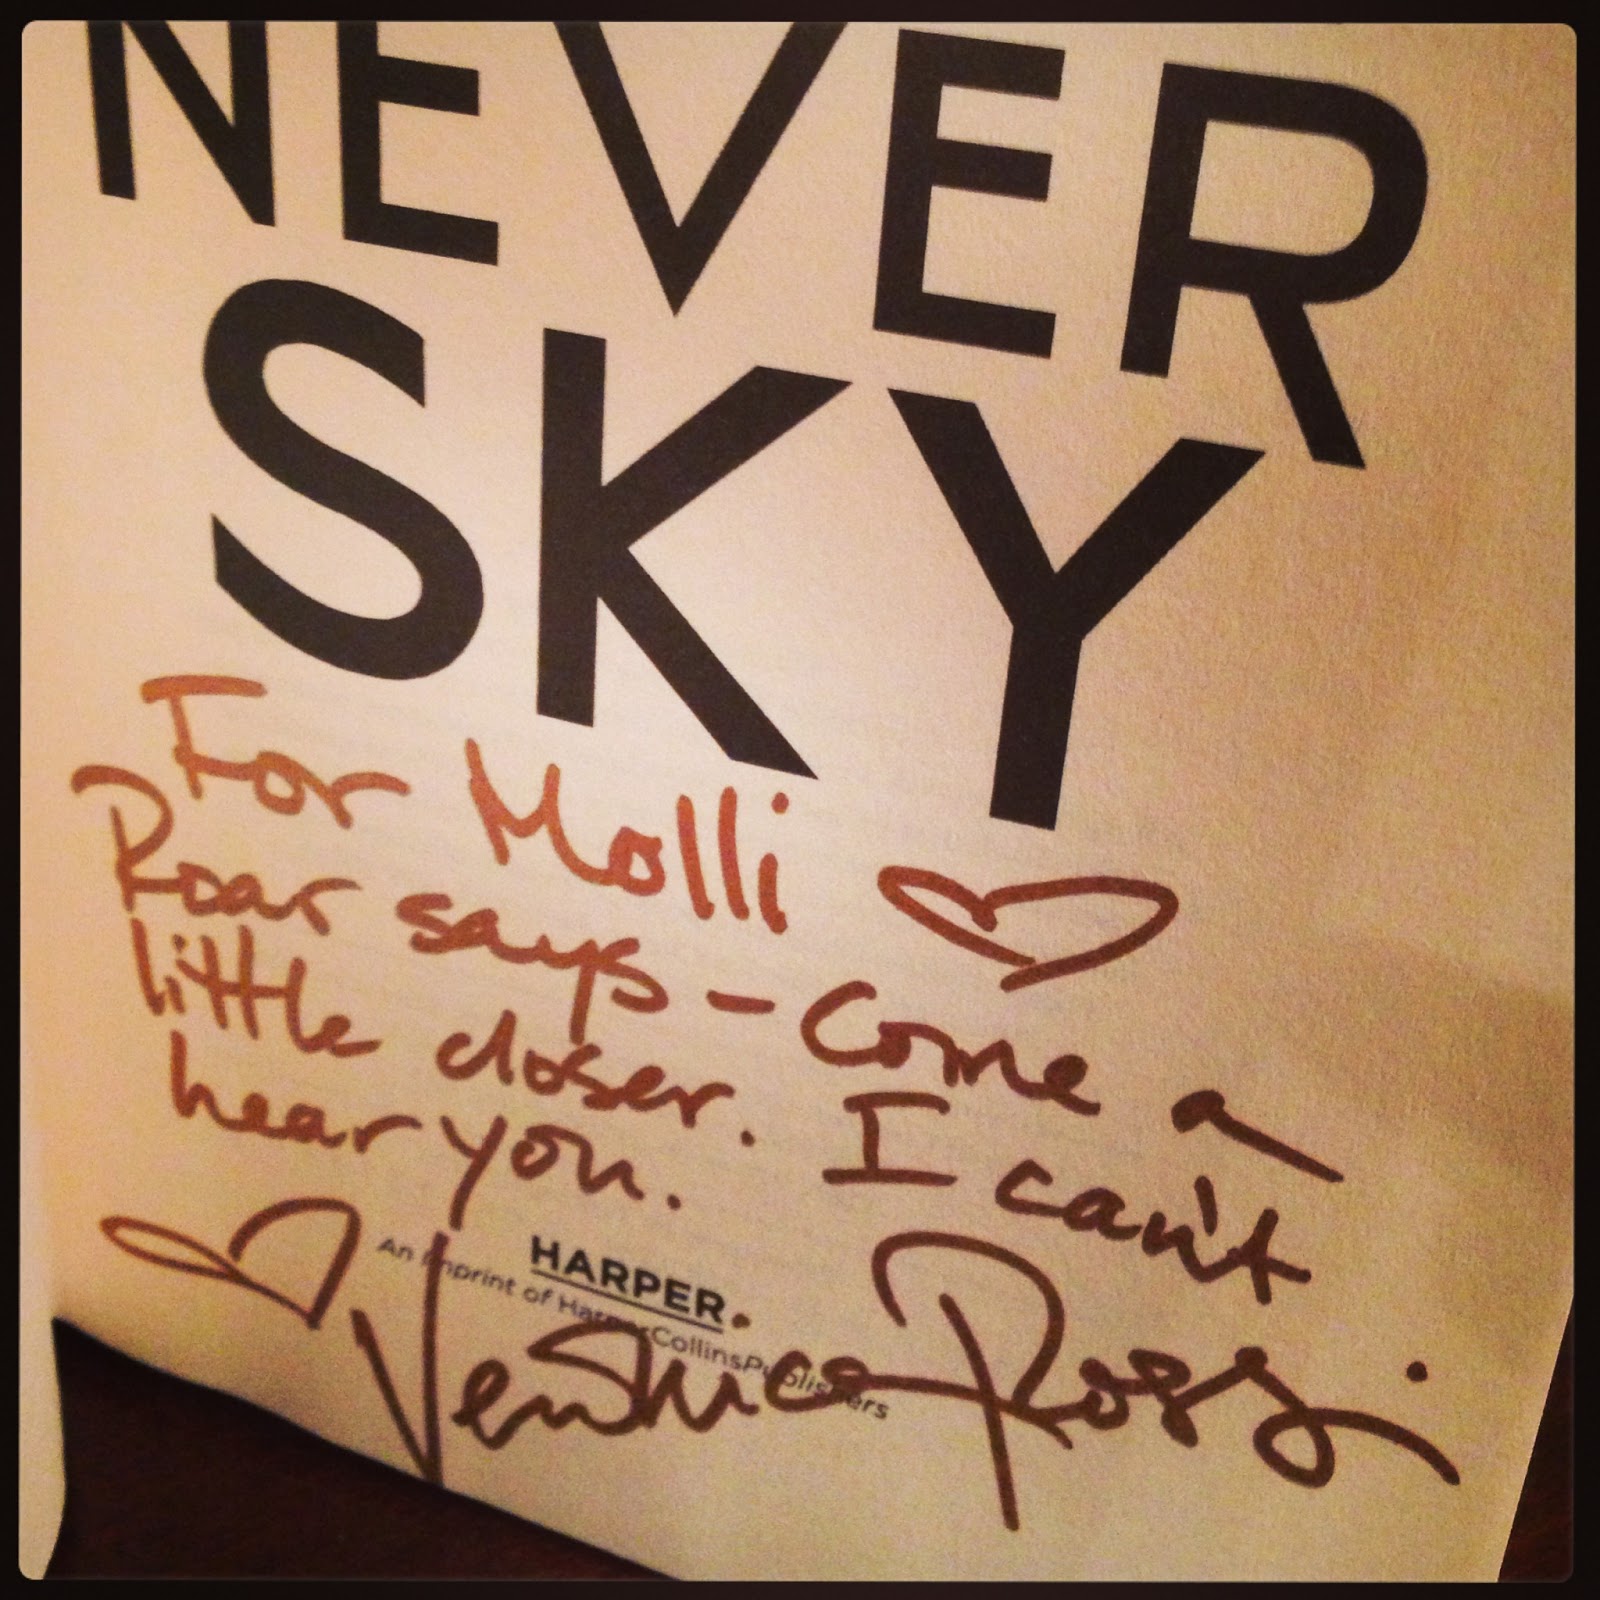 NEVER
SKY
For Molli
Roar says - Come a
little closer. I can't
hear you.
HARPER
An Imprint of HarperCollinsPublishers
Veronica Rossi